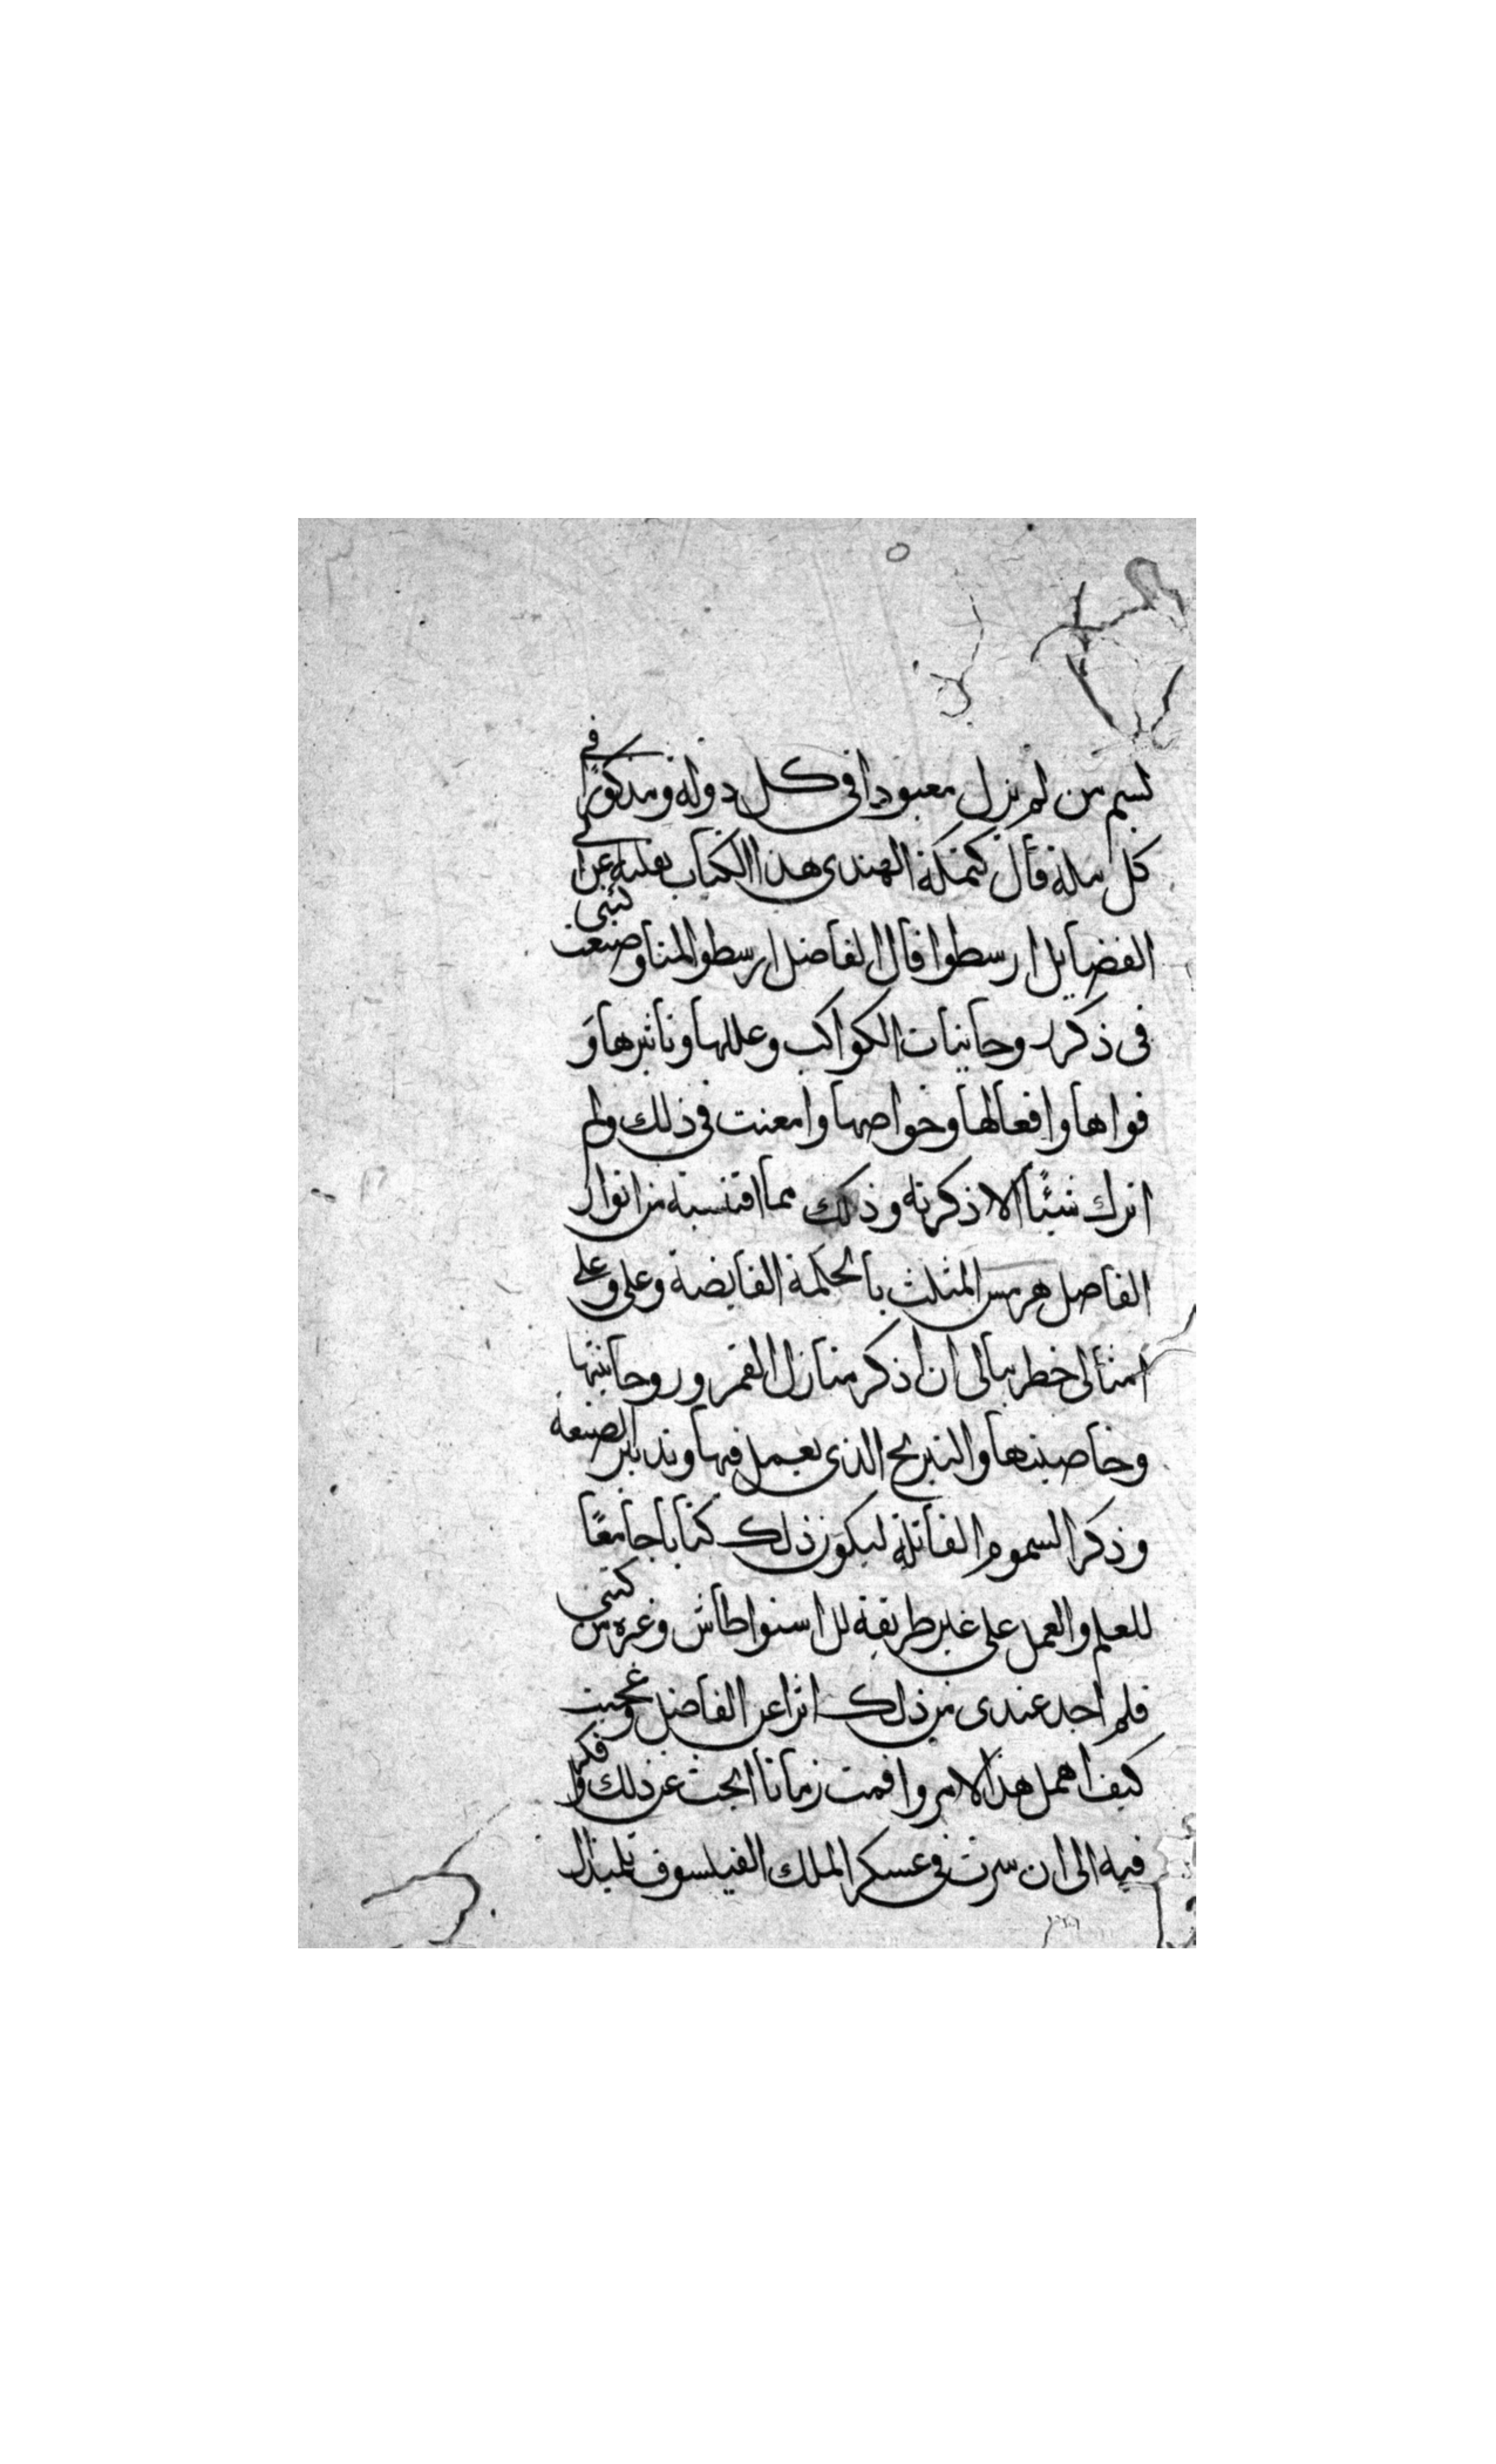 بسم من لم يزل معبودا في كل دولة ومذكورًا في
كل ملة قال كمكة الهندى هذا الكتاب نقلته عن ابى
الفضايل ارسطوا قال الفاضل ارسطوا لمنا وضعت كتبى
فى ذكر روحانيات الكواكب وعللها وتاثيرها و
قواها وافعالها وخواصها وامعنت فى ذلك ولم
اترك شيئًا الا ذكرته وذلك مما اقتسبته من انوار
الفاضل هرمس المثلث بالحكمة الفايضة وعلى وعلى
امثالى خطر ببالى ان اذكر منازل القمر وروحانيتها
وخاصيتها والنيرنج الذى يعمل فيها وتدابير الصنعة
وذكر السموم القاتلة ليكون ذلك كتابا جامعًا
للعلم والعمل على غير طريقة للاسنواطاش وغيره من كتبى
فلم اجد عندى من ذلك اثرا عن الفاضل وعجبت
كيف اهمل هذا الامر واقمت زمانا ابحث عن ذلك وافكر
فيه الى ان سرت فى عسكر الملك الفيلسوف تلميذ ال